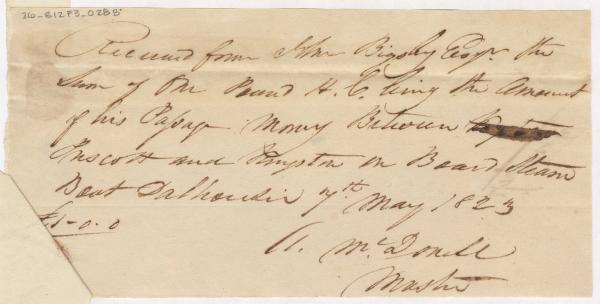 26-B12F3_0288
Received from John Bigsby Esqr. the
Sum of One Pound H. C. being the Amount
of his Passage Money Between
Prescott and Kingston on Board Steam
Boat Dalhousie 7th May 1823
£1-0.0
A. McDonell
Master